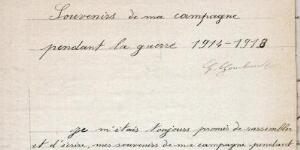 Souvenirs de ma campagne
pendant la guerre 1914-1918
Je m'étais toujours promis de rassembler
et d'écrire, mes souvenirs de ma campagne pendant